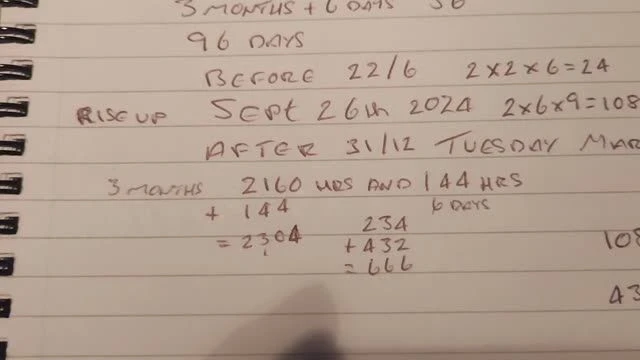 3 MONTHS + 6 DAYS
96 DAYS
BEFORE 22/6 2×2×6=24
RISE UP SEPT 26th 2024 2×6×9=108
AFTER 31/12 TUESDAY MAR
3 MONTHS 2160 HRS AND 144 HRS
+ 144 6 DAYS
= 2304
234
+ 432
= 666
108
43